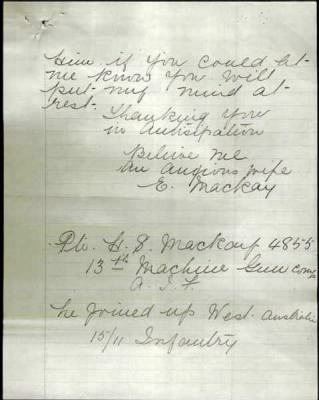 Him if you could let
me know you will
put my mind at
rest.
Thanking You
in Anticipation
Belive me
An Anxious wife
E. Mackay
Pte. H. S. Mackay 4855
13th Machine Gun Comp
A. I. F
he Joined up West. Australia
15/11 Infantry